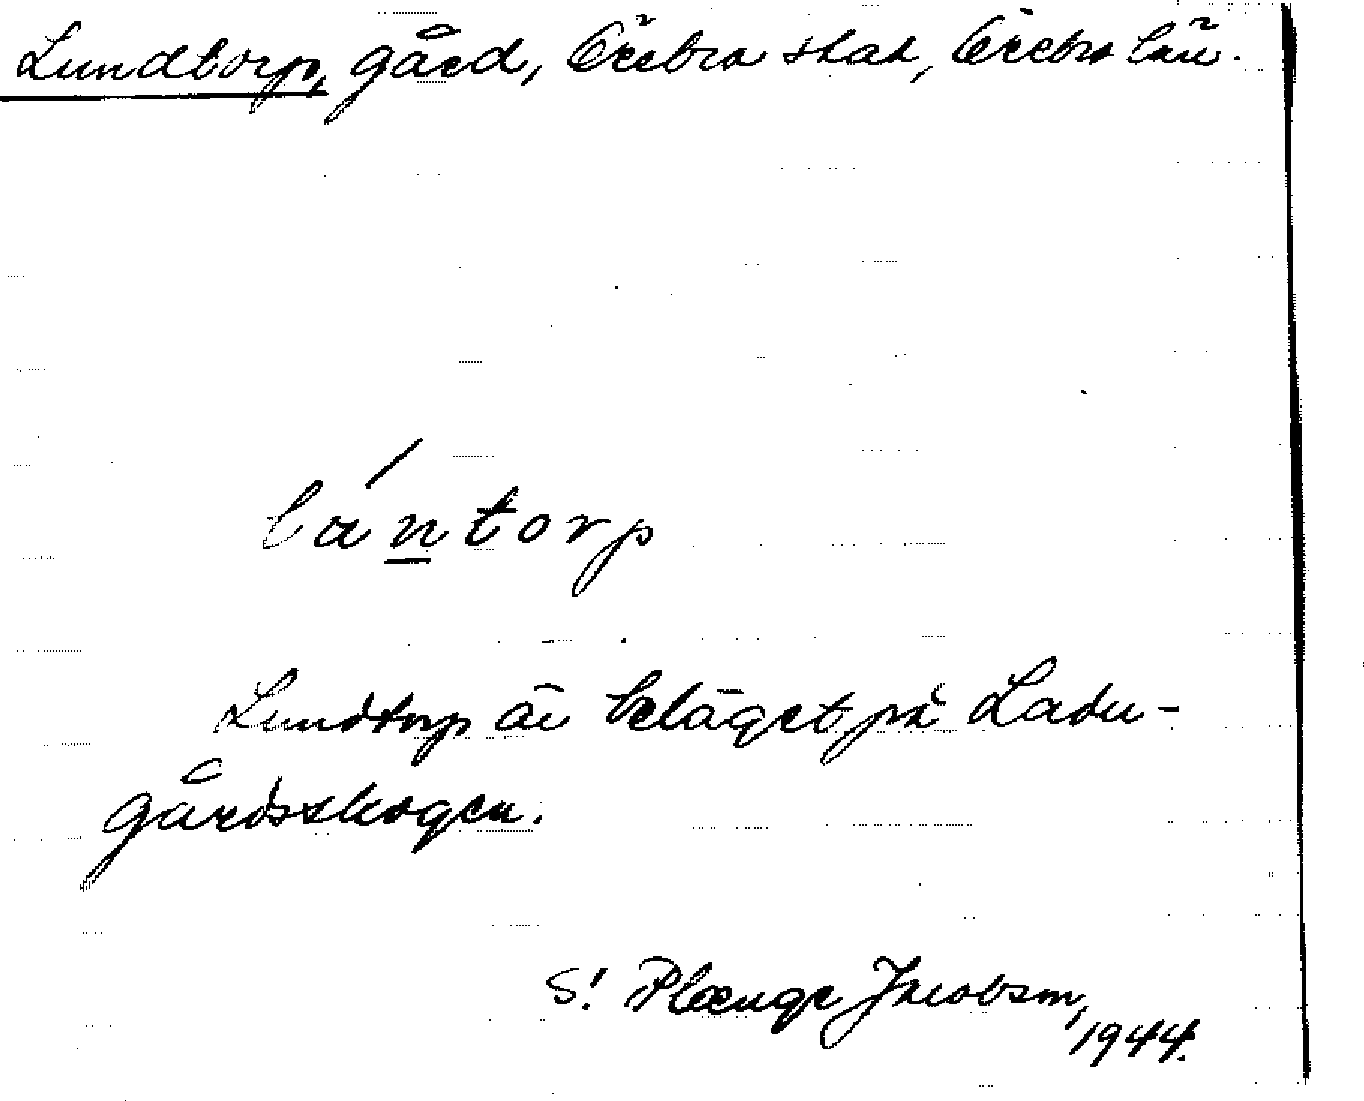 Lundtorp, gård, Örebro stad, Örebro län.
lántorp
Lundtorp är beläget på Ladu-
gårdsskogen.
S! Plænge Jacobson,
1944.